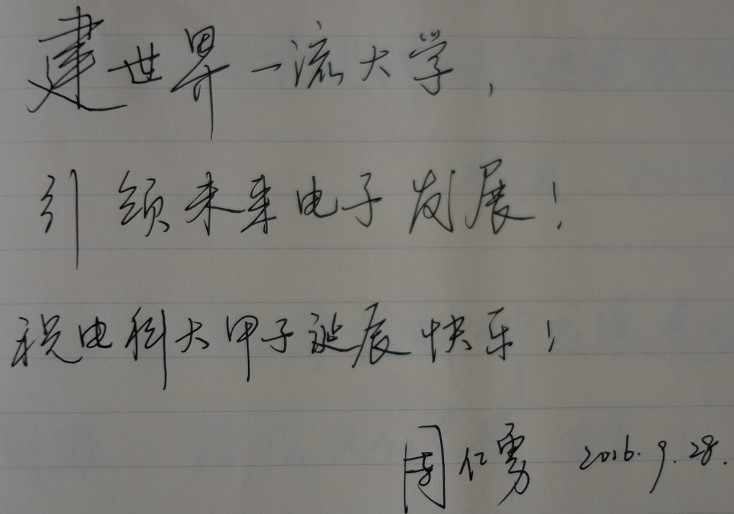 建世界一流大学,
引领未来电子发展!
祝电科大甲子诞辰快乐!
周仁勇 2016.9.28.